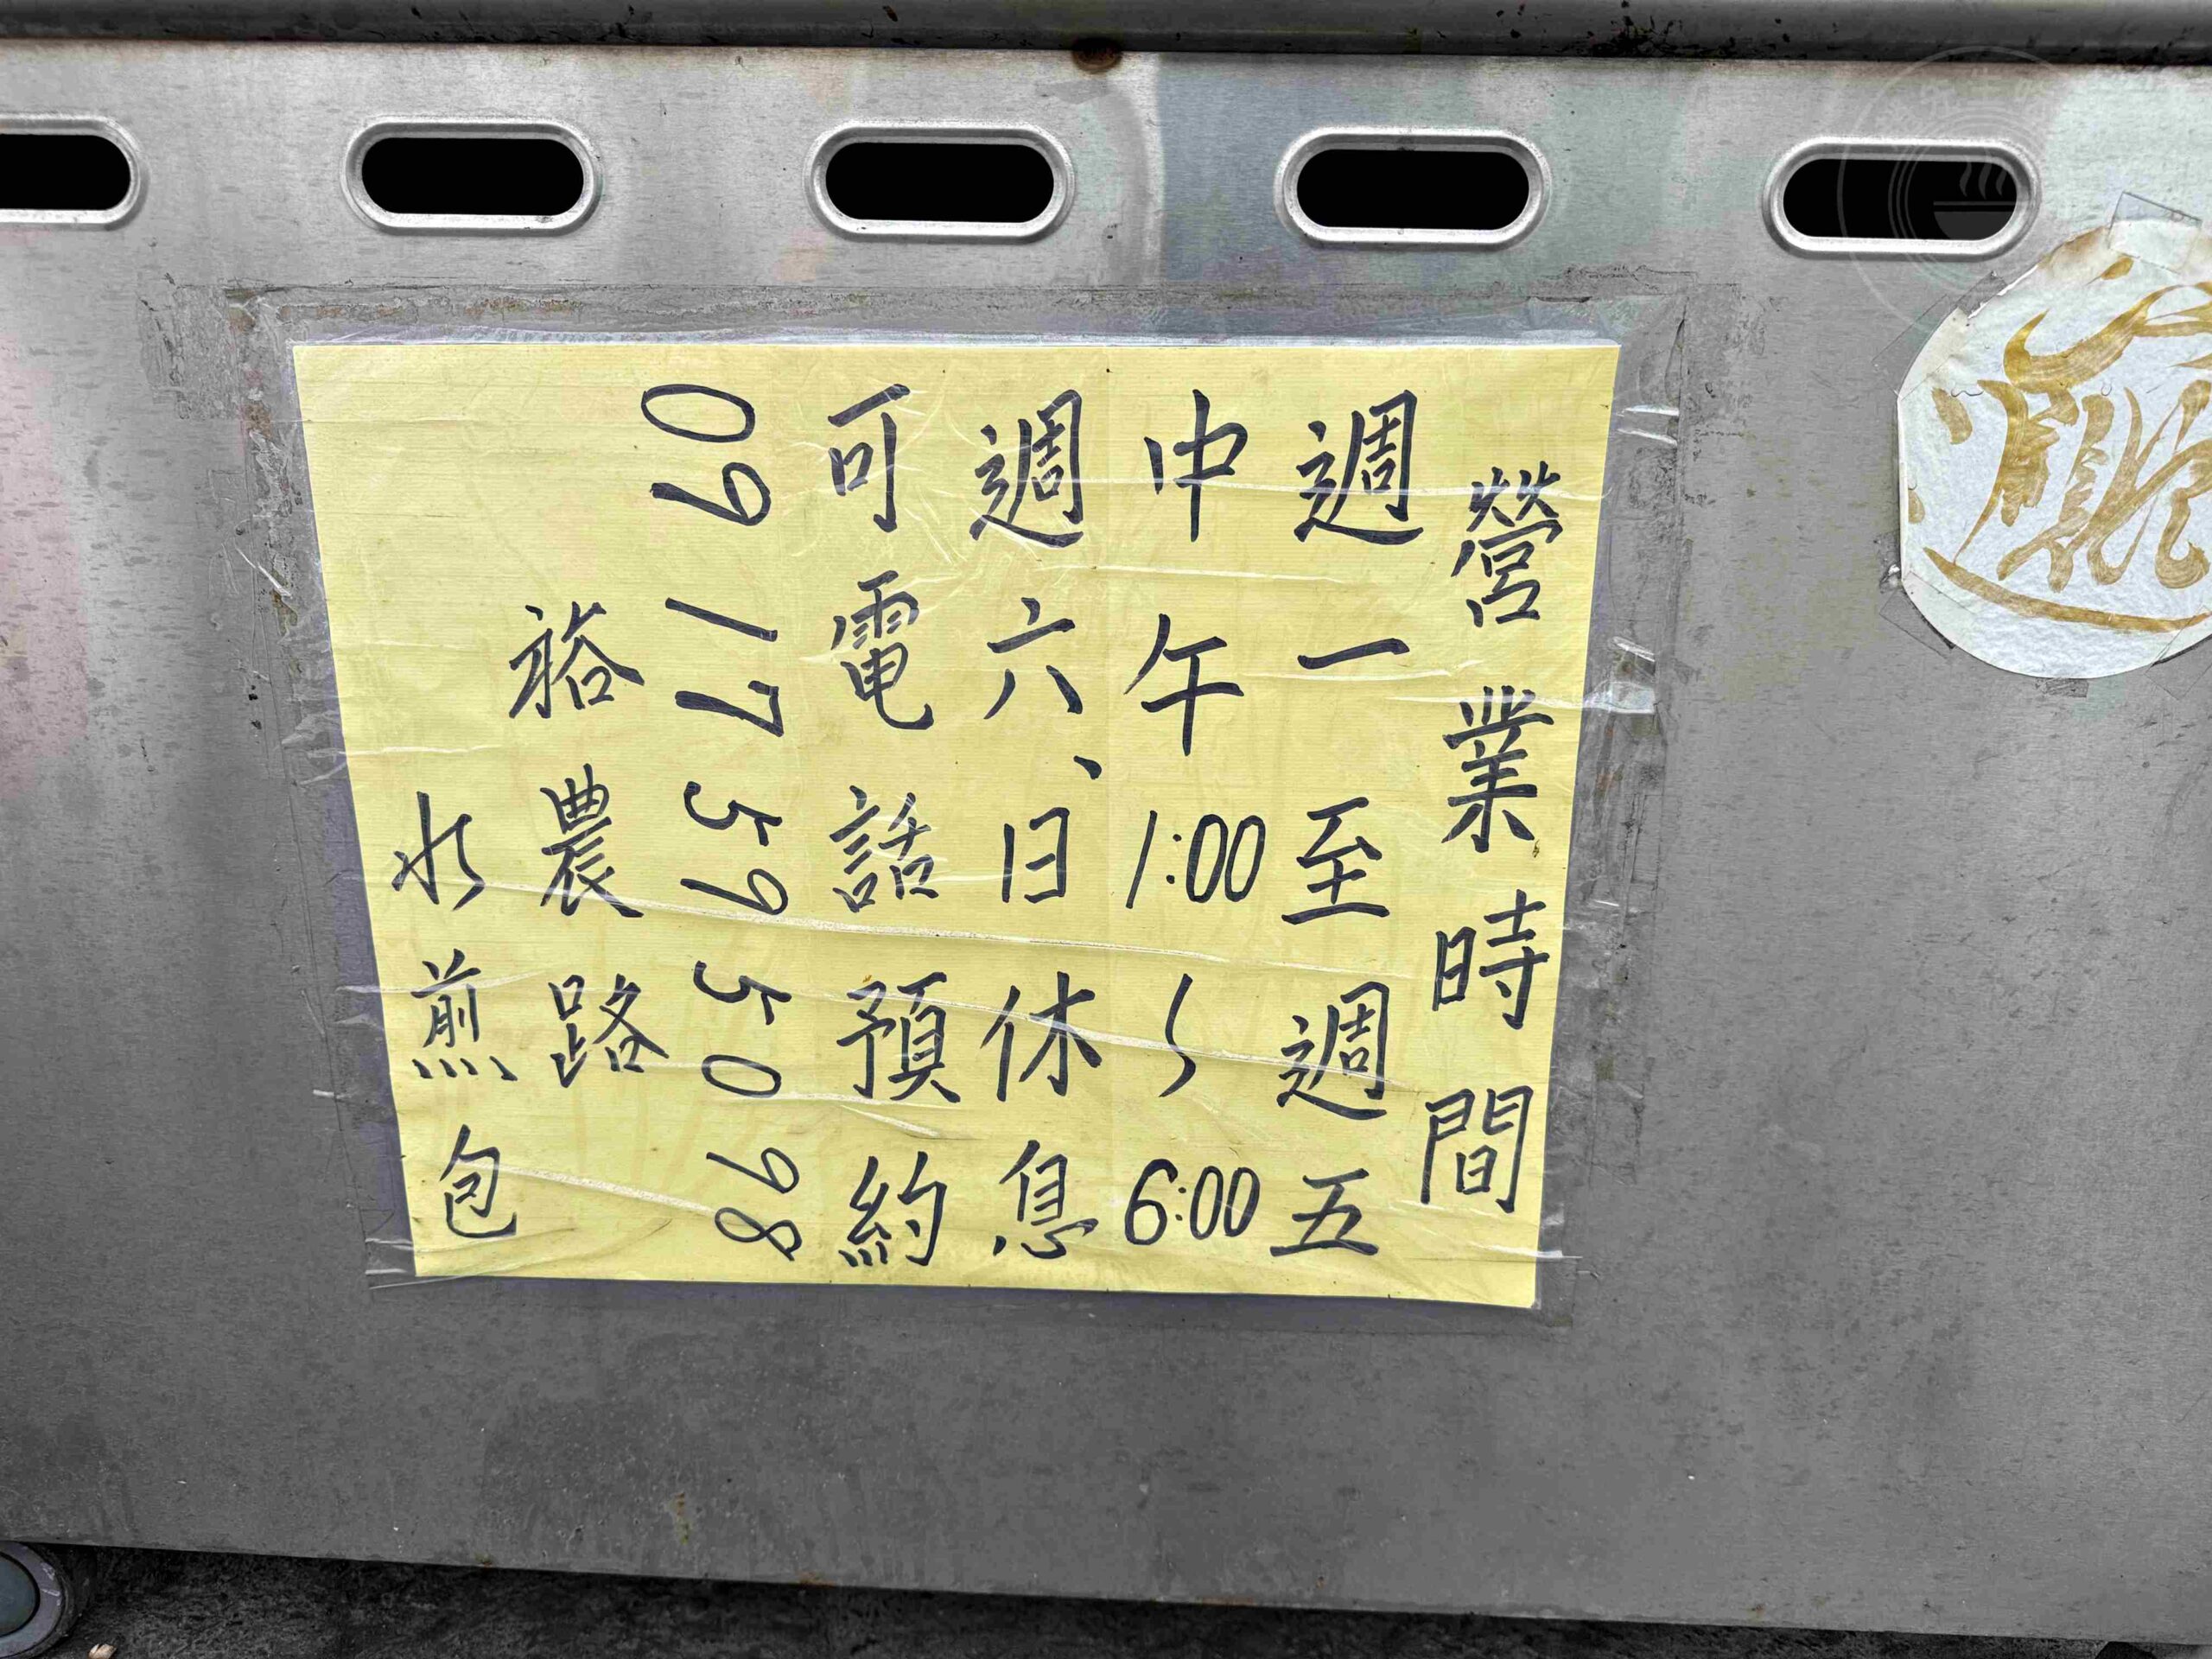 營業時間
週一至週五
中午1:00~6:00
週六、日休息
可電話預約
0917595098
裕農路
水煎包